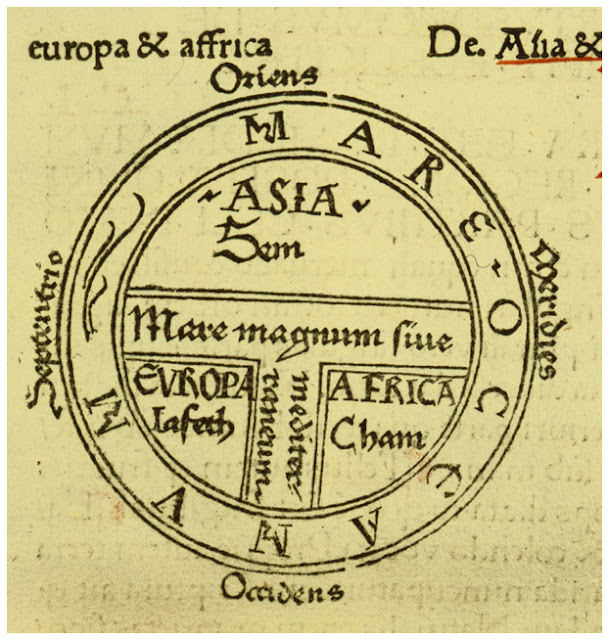 europa & affrica
De. Asia &
Oriens
MARE OCEANVM
ASIA
Sem
Septentrio
Meridies
Mare magnum siue
EVROPA
Iafeth
mediter
raneum
AFRICA
Cham
Occidens